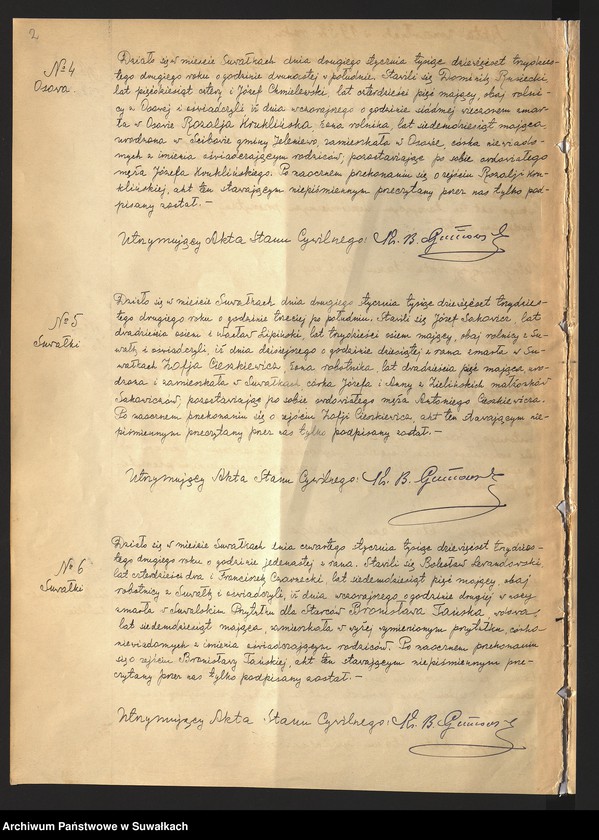 2
№ 4
Osowa.
Działo się w mieście Suwałkach dnia drugiego stycznia tysiąc dziewięćset trzydzies-
tego drugiego roku o godzinie dwunastej w południe. Stawili się Dominik Rusiecki,
lat pięćdziesiąt cztery i Józef Chmielewski, lat czterdzieści pięć mający, obaj rolni-
cy z Osowej i oświadczyli, iż dnia wczorajszego o godzinie siódmej wieczorem zmar-
ła w Osowie Rozalja Kruklińska, żona rolnika, lat siedemdziesiąt mająca,
urodzona w Ścibowie gminy Jeleniewo, zamieszkała w Osowie, córka niewiado-
mych z imienia oświadczającym rodziców, pozostawiając po sobie owdowiałego
męża Józefa Kruklińskiego. Po naocznem przekonaniu się o zejściu Rozalji Kru-
klińskiej, akt ten stawającym niepiśmiennym przeczytany przez nas tylko pod-
pisany został. —
Utrzymujący Akta Stanu Cywilnego: Ks. B.
№ 5
Suwałki
Działo się w mieście Suwałkach dnia drugiego stycznia tysiąc dziewięćset trzydzies-
tego drugiego roku o godzinie trzeciej po południu. Stawili się Józef Sakowicz lat
dwadzieścia osiem i Wacław Lipiński, lat trzydzieści osiem mający, obaj rolnicy z Su-
wałk i oświadczyli, iż dnia dzisiejszego o godzinie dziesiątej z rana zmarła w Su-
wałkach Zofja Cieszkiewicz, żona robotnika, lat dwadzieścia pięć mająca, uro-
dzona i zamieszkała w Suwałkach córka Józefa i Anny z Zielińskich małżonków
Sakowiczów, pozostawiając po sobie owdowiałego męża Antoniego Cieszkiewicza.
Po naocznem przekonaniu się o zejściu Zofji Cieszkiewicz, akt ten stawającym nie-
piśmiennym przeczytany przez nas tylko podpisany został. —
Utrzymujący Akta Stanu Cywilnego: Ks. B.
№ 6
Suwałki
Działo się w mieście Suwałkach dnia czwartego stycznia tysiąc dziewięćset trzydzies-
tego drugiego roku o godzinie jedenastej z rana. Stawili się Bolesław Lewandowski,
lat czterdzieści dwa i Franciszek Czarnecki, lat siedemdziesiąt pięć mający, obaj
robotnicy z Suwałk i oświadczyli, iż dnia wczorajszego o godzinie drugiej w nocy
zmarła w Suwalskim Przytułku dla Starców Bronisława Tańska wdowa,
lat siedemdziesiąt mająca, zamieszkała w wyżej wymienionym przytułku, córka
niewiadomych z imienia oświadczającym rodziców. Po naocznem przekonaniu
się o zejściu Bronisławy Tańskiej, akt ten stawającym niepiśmiennym prze-
czytany przez nas tylko podpisany został. —
Utrzymujący Akta Stanu Cywilnego: Ks. B.
Archiwum Państwowe w Suwałkach